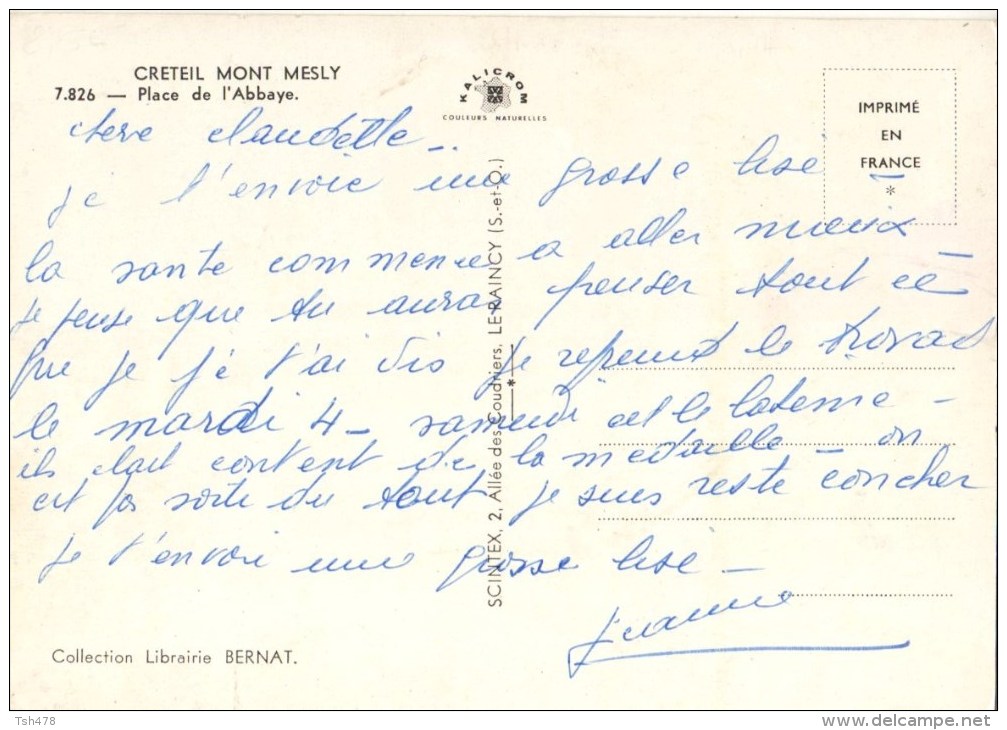 CRETEIL MONT MESLY
7.826 — Place de l'Abbaye.
KALICROM
COULEURS NATURELLES
IMPRIMÉ
EN
FRANCE
*
chere claudette --
je t'envoie une grosse bise —
la sante commence a aller mieux —
je pense que tu auras penser tout ce
que je t'ai dis je reprends le travail
le mardi 4 — samedi et le —
ils etait content de la medaille — on
est pas sorti du tout je suis reste coucher
je t'envoi une grosse bise —
Jeanne
SCINTEX, 2, Allée des Coudriers, LE RAINCY (S.-et-O.)
Collection Librairie BERNAT.
Tsh478
www.delcampe.net